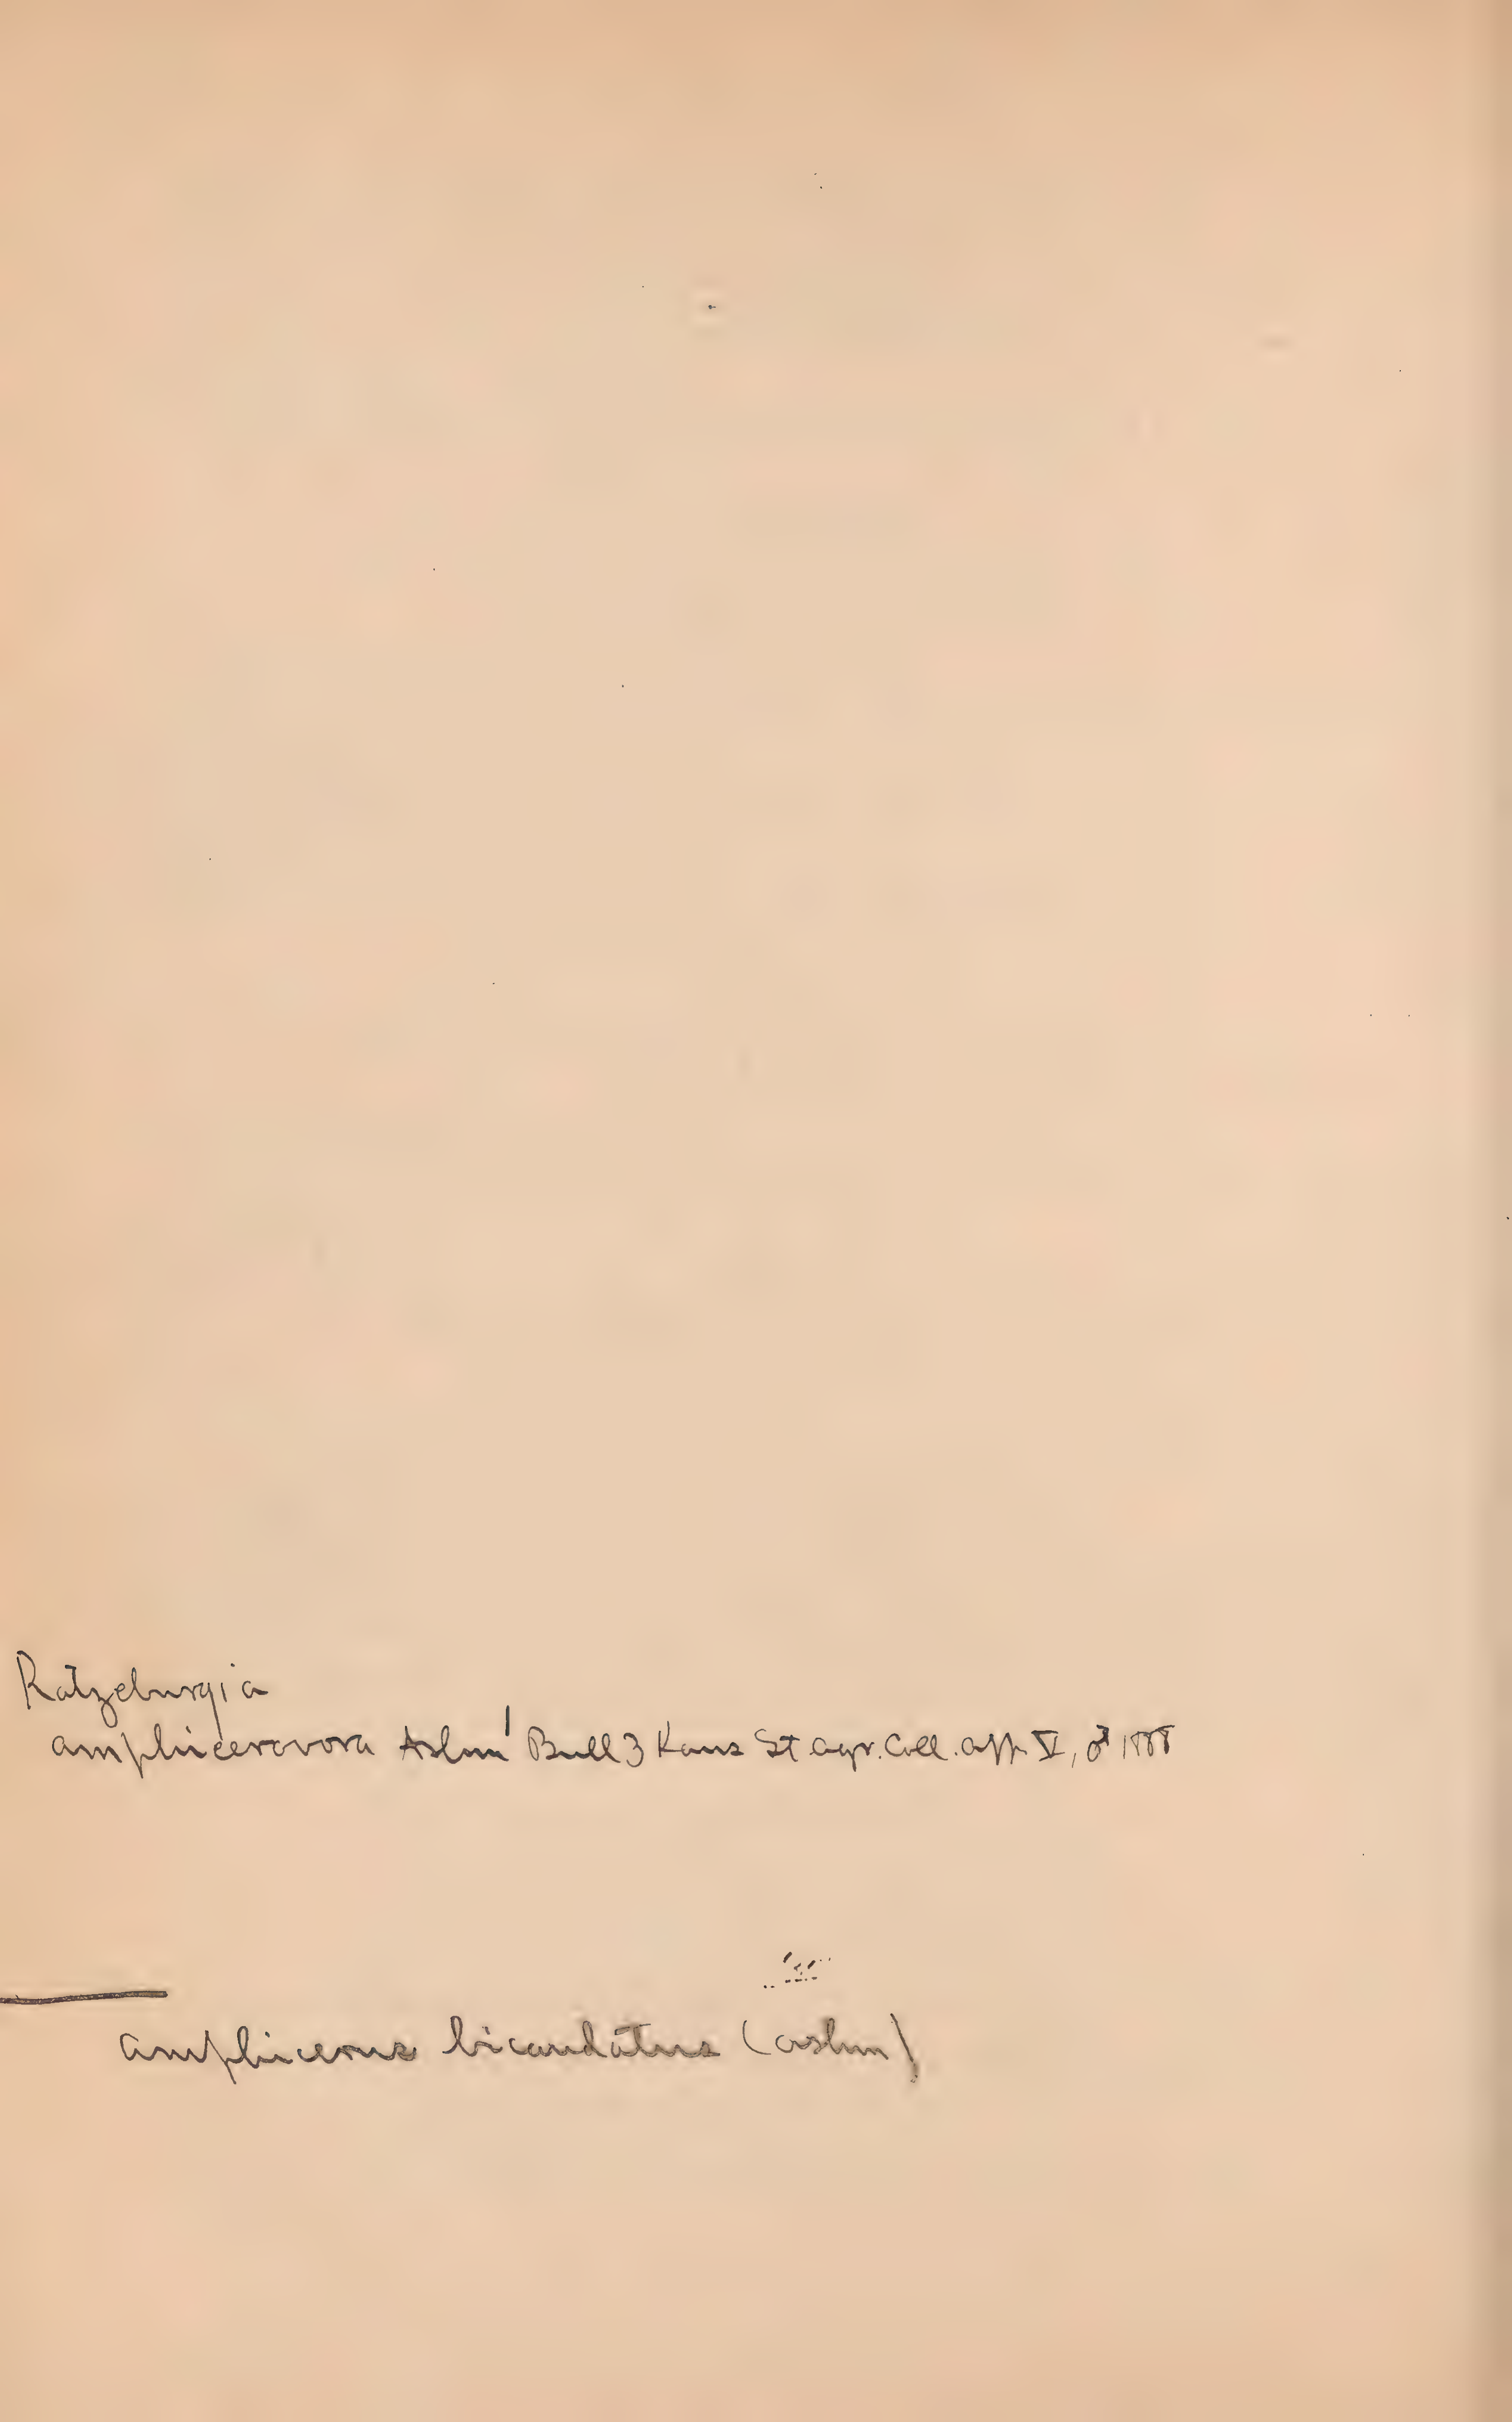 Ratzeburgia
amphicerovora Ashm' Bull 3 Kans St Agr. Coll. App V, ♂ 1888
Amphicerus bicaudatus (Ashm)